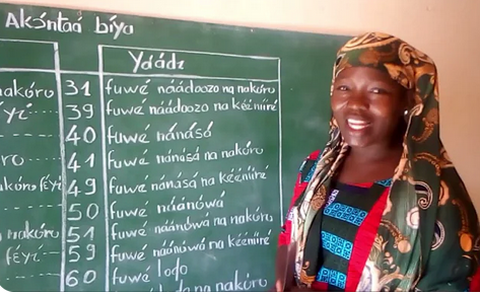 Akɔ́ntaá bíya
Yaádɩ
nakóro 31 fuwé náádoozo na nakóro
39 fuwé náádoozo na kéénííré
40 fuwé nánásá
41 fuwé nánásá na nakóro
49 fuwé nánásá na kéénííré
50 fuwé náánúwá
nakóro 51 fuwé náánúwá na nakóro
féyi 59 fuwé náánúwá na kéénííré
60 fuwé lodo
na nakóro